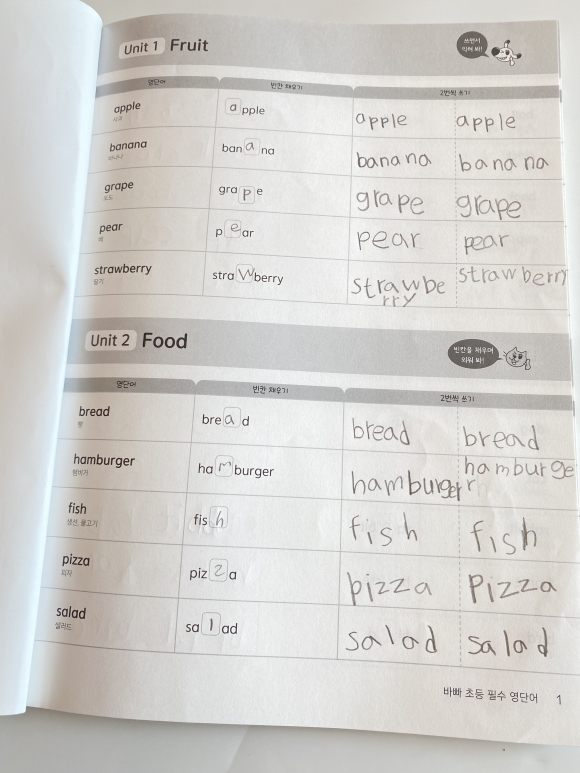 Unit 1 Fruit
쓰면서
익혀 봐!
영단어 빈칸 채우기 2번씩 쓰기
apple a pple apple apple
사과
banana ban a na banana banana
바나나
grape gra p e grape grape
포도
pear p e ar pear pear
배
strawberry stra w berry strawbe strawberry
딸기 rry
Unit 2 Food
빈칸을 채우며
외워 봐!
영단어 빈칸 채우기 2번씩 쓰기
bread bre a d bread bread
빵
hamburger ha m burger hamburger hamburge
햄버거 r
fish fis h fish fish
생선, 물고기
pizza piz z a pizza Pizza
피자
salad sa l ad salad salad
샐러드
바빠 초등 필수 영단어 1